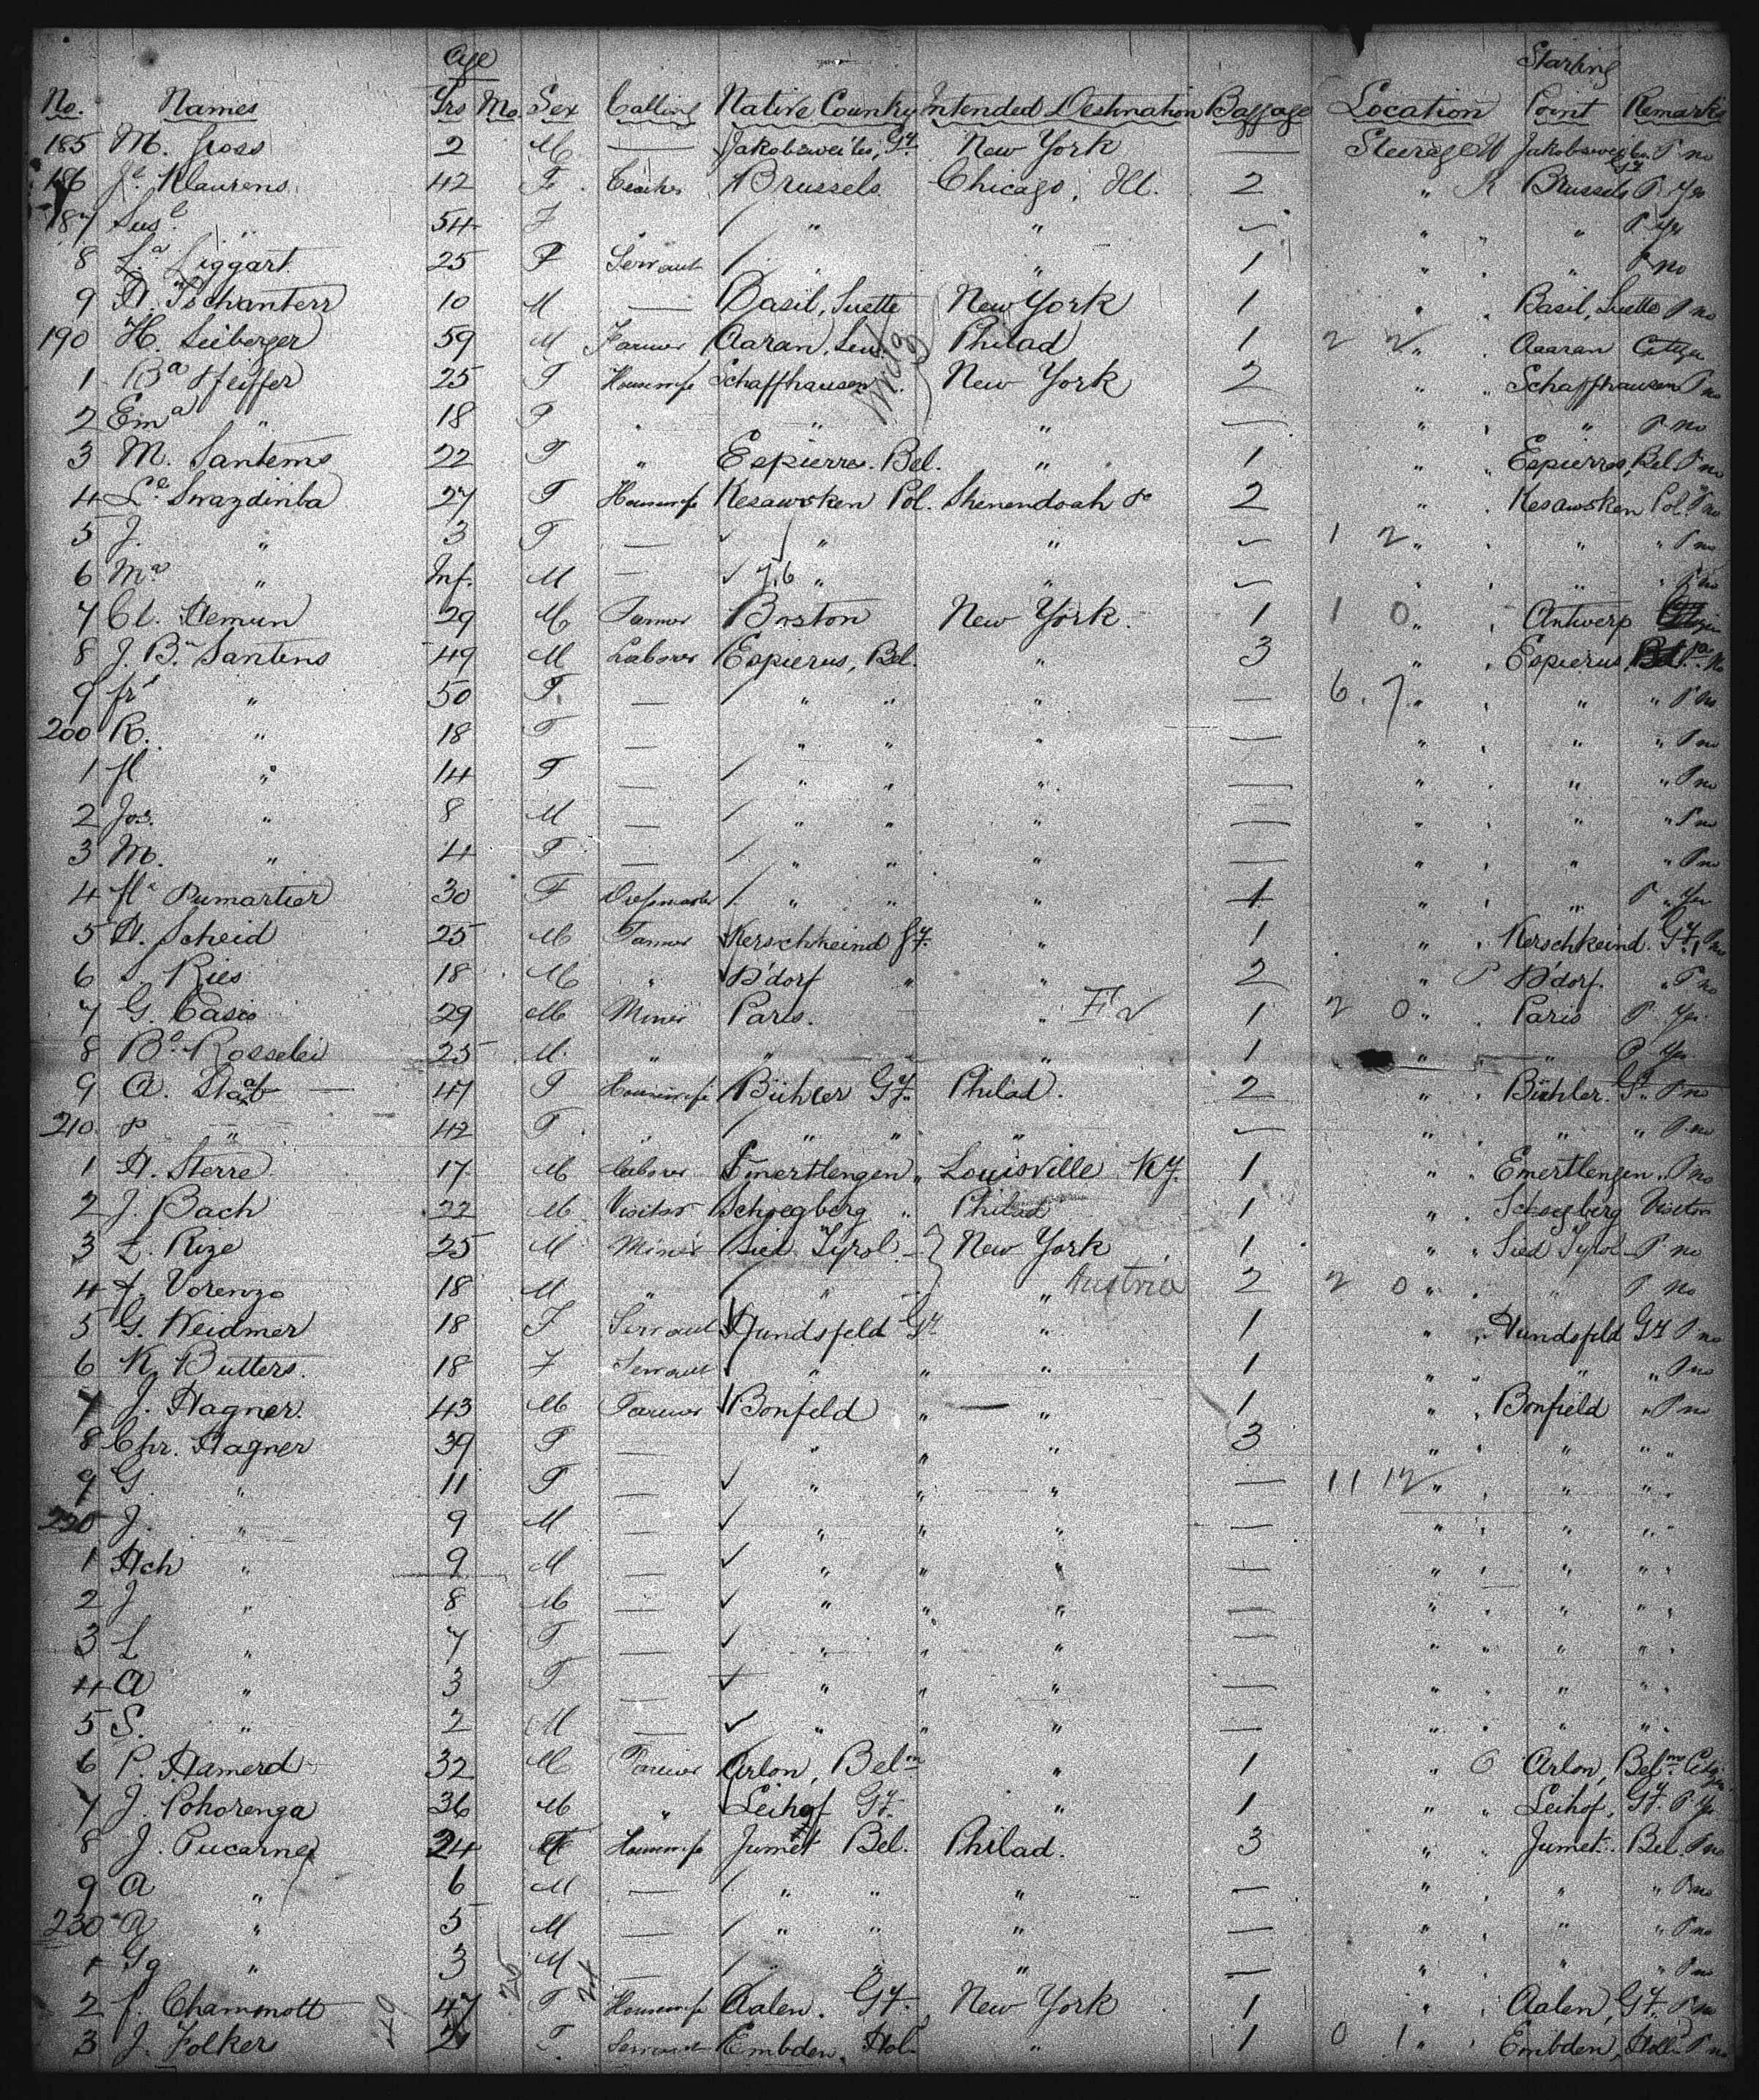 Age Starting
No. Names Yrs Mo. Sex Calling Native Country Intended Destination Baggage Location Point Remarks
185 M. Gross 2 M — Jakobsweiler, Gy. New York — Steerage Jakobsweiler Gy P no
186 Klaurens 42 F Chicago, Ill. Brussels 2 " Brussels P Yes
187 " 54 F " " " " P Yes
8 Liggart 25 F Servant " " 1 " " P no
9 Tschanterr 10 M — Basil, Suette New York 1 " Basil, Suette P no
190 H. Leiberger 59 M Farmer Aaran, Philad 1 2 2 " Aaaran
1 Ba Pfeiffer 25 F Housewife Schaffhausen New York 2 " Schaffhausen P no
2 Ema " 18 F " " " — " " P no
3 M. Santems 22 F " Espierres. Bel. " 1 " Espierres, Bel. P no
4 Le Swazdinba 27 F Housewife Kesawsken Pol. Shenendoah Pa 2 " Kesawsken Pol. P no
5 J. " 3 F — " " 1 2 " " " P no
6 Ma " Inf. M — 7.6 " " " " " P no
7 Cl. Hemun 29 M Farmer Boston New York. 1 1 0 " Antwerp
8 J. B. Santens 49 M Laborer Espierus, Bel. " 3 " Espierus, Bel. P no
9 " 50 F. — " " " — 6. 7 " " " P no
200 R. " 18 F — " " " — " " " P no
1 " 14 F — " " " — " " " P no
2 Jos. " 8 M — " " " — " " " P no
3 M. " 4 F — " " " — " " " P no
4 Dumartier 30 F Dressmaker " " " 1 " " P " Yes
5 H. Scheid 25 M Farmer Kerschheind Gy. " 1 " Kerschkeind. Gy. P no
6 Ries 18 M " D'dorf " " 2 " D'dorf. " P no
7 G. Casis 29 M Miner Paris. " Fr 1 2 0 " Paris P Yes
8 Ba. Rosselei 25 M. " " " 1 " " P Yes
9 A. Staab — 47 F Housewife Bühler Gy. Philad. 2 " Bühler. Gy. P no
210 P " 42 F " " " " " " " P no
1 H. Sterre 17 M Laborer Emertlengen " Louisville Ky. 1 " Emertlengen " P no
2 J. Bach 22 M Visitor Schoegberg " Philad 1 " Schoegberg Visitor
3 Rize 25 M Miner Sied Tyrol New York 1 " Sied Tyrol P no
4 Vorenzo 18 M " " " Austria 2 2 0 " " P no
5 G. Weidmer 18 F Servant Hundsfeld Gy " 1 " Hundsfeld Gy P no
6 K. Butters. 18 F Servant " " " 1 " " " P no
7 J. Hagner. 43 M Farmer Bonfeld " — " 1 " Bonfield " P no
8 Chr. Hagner 39 F — " " " 3 " " " "
9 G. " 11 F — " " " — 11 12 " " "
220 J. " 9 M — " " " — " " "
1 Hch " 9 M — " " " — " " "
2 J " 8 M — " " " — " " "
3 L " 7 F — " " " — " " "
4 A " 3 F — " " " — " " "
5 S. " 2 M — " " " — " " "
6 P. Hamerd 32 M Farmer Arlon, Belm " 1 " Arlon, Belm.
7 J. Pohorenga 36 M " Leihof Gy. " 1 " Leihof, Gy. P Yes
8 J. Pucarne 24 F Housewife Jumet Bel. Philad. 3 " Jumet. Bel. P no
9 A " 6 M — " " " — " " " P no
230 A " 5 M — " " " — " " " P no
1 Gg " 3 M — " " " — " " " P no
2 Chammott 47 F Housewife Aalen. Gy. New York 1 " Aalen, Gy. P no
3 J. Folkers F. Servant Embden. Hol. " 1 0 1 " Embden, Holl. P no